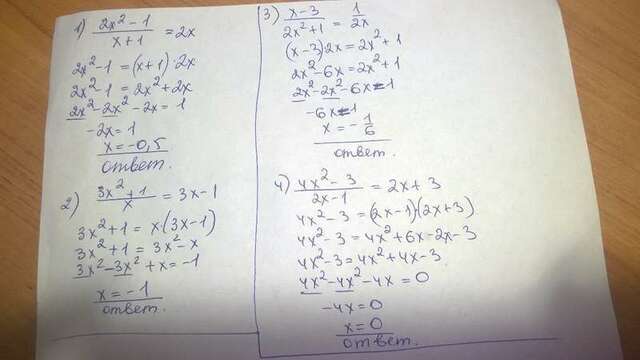 1) (2x² - 1)/(x + 1) = 2x
2x² - 1 = (x + 1) · 2x
2x² - 1 = 2x² + 2x
2x² - 2x² - 2x = 1
-2x = 1
x = -0,5
ответ.
2) (3x² + 1)/x = 3x - 1
3x² + 1 = x · (3x - 1)
3x² + 1 = 3x² - x
3x² - 3x² + x = -1
x = -1
ответ.
3) (x - 3)/(2x² + 1) = 1/(2x)
(x - 3) · 2x = 2x² + 1
2x² - 6x = 2x² + 1
2x² - 2x² - 6x = 1
-6x = 1
x = -1/6
ответ.
4) (4x² - 3)/(2x - 1) = 2x + 3
4x² - 3 = (2x - 1) · (2x + 3)
4x² - 3 = 4x² + 6x - 2x - 3
4x² - 3 = 4x² + 4x - 3
4x² - 4x² - 4x = 0
-4x = 0
x = 0
ответ.